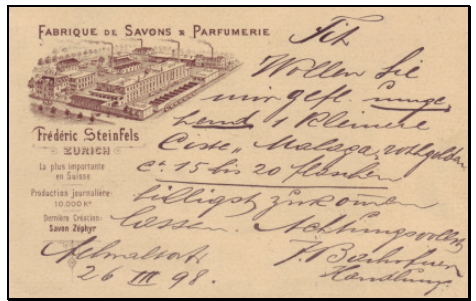 FABRIQUE DE SAVONS & PARFUMERIE
Frédéric Steinfels
ZURICH
La plus importante
en Suisse
Production journalière:
10.000 Ko
Dernière Création:
Savon Zéphyr
Tit
Wollen Sie
mir gefl. umge-
hend 1 kleinere
Ciste „Malaga, rothgolden
ca 15 bis 20 flaschen
billigst zukomen
lassen. Achtungsvollst
J. Bischofner
Handlung.
26 III 98.